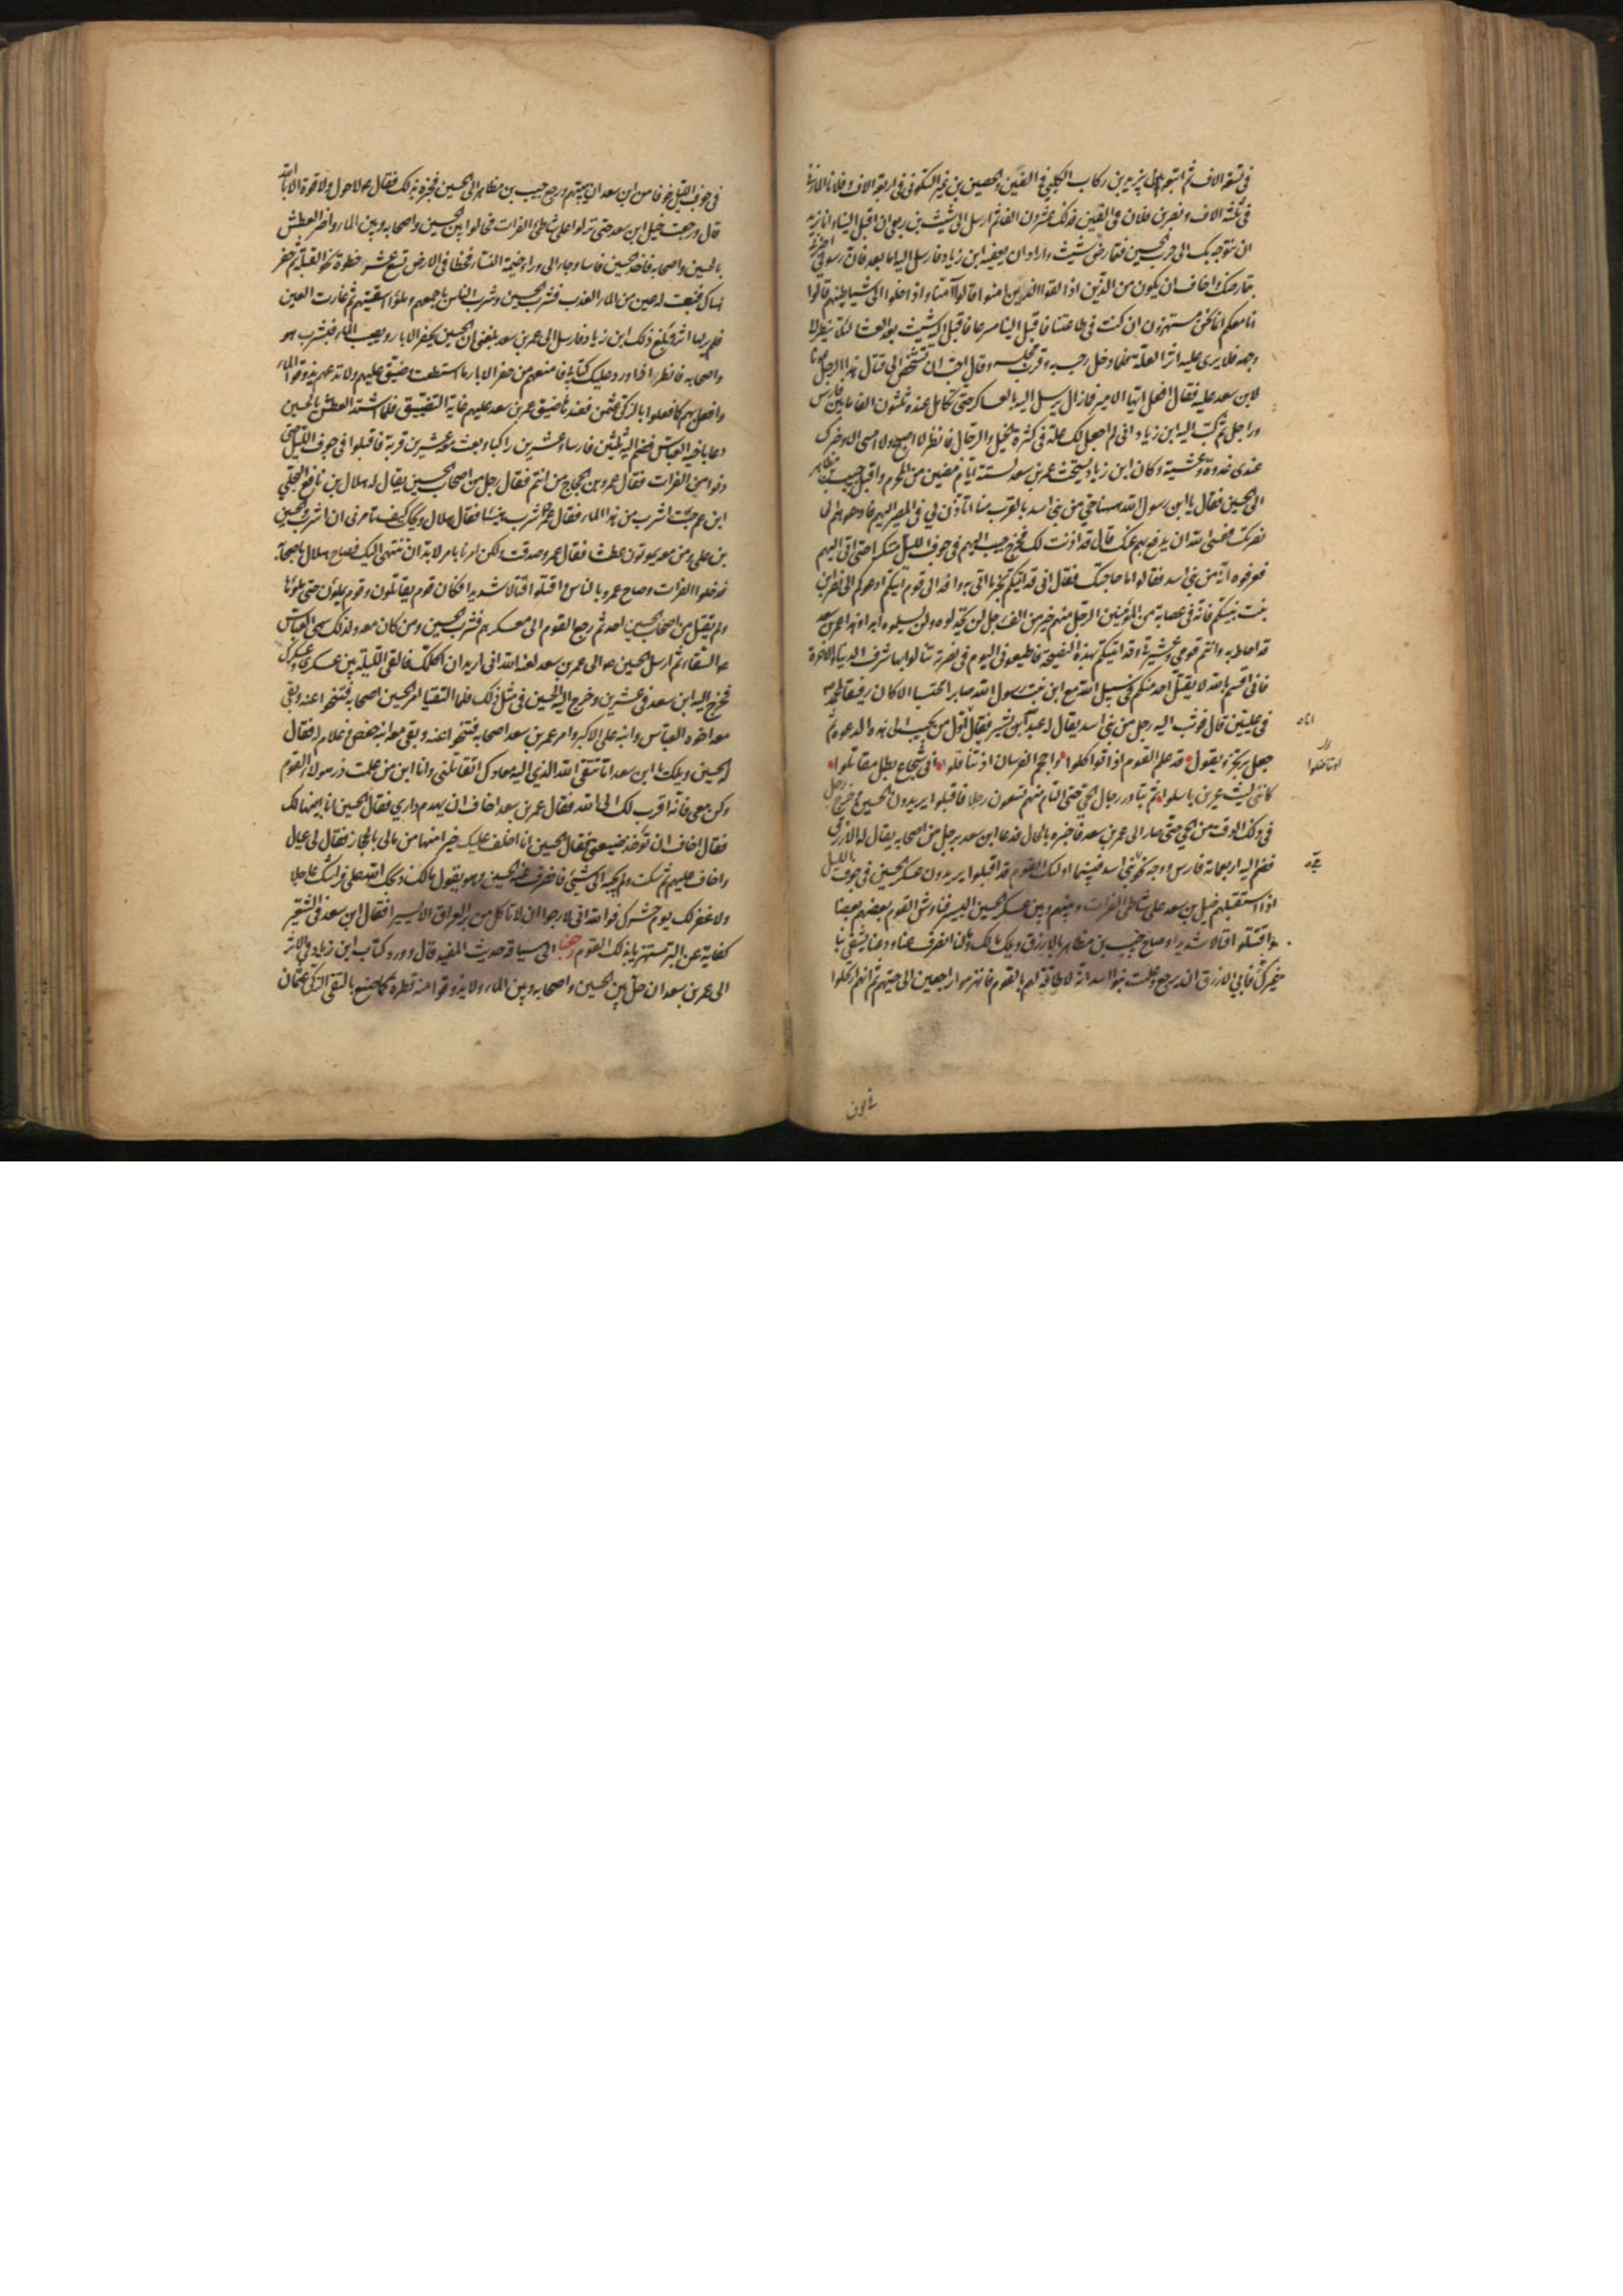 في تسعة الاف ثم اتبعه بيزيد بن ركاب الكلبي في الفين والحصين بن نمير السكوني في اربعة الاف وفلانا المازني
في ثلثة الاف ونصر بن فلان في الفين فذلك عشرون الفا ثم ارسل الى شبث بن ربعي ان اقبل الينا وانا نريد
ان نتوجه بك الى حرب الحسين فتمارض شبث واراد ان يعفيه ابن زياد فارسل اليه اما بعد فان رسولي اخبرني
بتمارضك واخاف ان يكون من الذين اذا لقوا الذين امنوا قالوا آمنا واذا خلوا الى شياطينهم قالوا
انا معكم انما نحن مستهزؤن ان كنت في طاعتنا فاقبل الينا مسرعا فاقبل اليه شبث بعد العشا لئلا ينظر الى
وجهه فلا يرى عليه اثر العلة فلما دخل رحب به وقرب مجلسه وقال احب ان تشخص الى قتال هذا الرجل عونا
لابن سعد عليه فقال افعل ايها الامير فما زال يرسل اليه بالعساكر حتى تكامل عنده ثلثون الفا ما بين فارس
وراجل ثم كتب اليه ابن زياد اني لم اجعل لك علة في كثرة الخيل والرجال فانظر لا اصبح ولا امسى الا وخبرك
عندي غدوة وعشية وكان ابن زياد يستحث عمر بن سعد لستة ايام مضين من المحرم واقبل حبيب بن مظاهر
الى الحسين فقال يا ابن رسول الله ههنا حي من بني اسد بالقرب منا اتأذن لي في المصير اليهم فادعوهم الى
نصرتك فعسى الله ان يدفع بهم عنك قال قد اذنت لك فخرج حبيب اليهم في جوف الليل متنكرا حتى اتى اليهم
فعرفوه انه من بني اسد فقالوا ما حاجتك فقال اني قد اتيتكم بخير ما اتى به وافد الى قوم اتيتكم ادعوكم الى نصر ابن
بنت نبيكم فانه في عصابة من المؤمنين الرجل منهم خير من الف رجل لن يخذلوه ولن يسلموه ابدا وهذا عمر بن سعد
قد احاط به وانتم قومي وعشيرتي وقد اتيتكم بهذه النصيحة فاطيعوني اليوم في نصرته تنالوا بها شرف الدنيا والاخرة
فاني اقسم بالله لا يقتل احد منكم في سبيل الله مع ابن بنت رسول الله صابرا محتسبا الا كان رفيقا لمحمد ص
في عليين قال فوثب اليه رجل من بني اسد يقال له عبد الله بن بشير فقال انا اول من يجيب الى هذه الدعوة ثم
جعل يرتجز ويقول قد علم القوم اذا تواكلوا واحجم الفرسان اذ تناقلوا اني شجاع بطل مقاتلوا
كانني ليث عرين باسلوا ثم تبادر رجال الحي حتى التام منهم تسعون رجلا فاقبلوا يريدون الحسين ع وخرج رجل
في ذلك الوقت من الحي حتى صار الى عمر بن سعد فاخبره بالحال فدعا ابن سعد برجل من اصحابه يقال له الازرق
فضم اليه اربعمائة فارس ووجه نحو بني اسد فبينما اولئك القوم قد اقبلوا يريدون عسكر الحسين في جوف الليل
اذا استقبلهم خيل بن سعد على شاطئ الفرات وبينهم وبين عسكر الحسين اليسير فناوش القوم بعضهم بعضا
واقتتلوا قتالا شديدا وصاح حبيب بن مظاهر بالازرق ويلك مالك ولنا انصرف عنا ودعنا يشقى بنا
غيرك فابى الازرق ان يرجع وعلمت بنوا اسد انه لا طاقة لهم بالقوم فانهزموا راجعين الى حيهم ثم انهم ارتحلوا
في جوف الليل خوفا من ابن سعد ان يبيتهم ورجع حبيب بن مظاهر الى الحسين فخبره بذلك فقال ع لا حول ولا قوة الا بالله
قال ورجعت خيل ابن سعد حتى نزلوا على شاطئ الفرات فحالوا بين الحسين واصحابه وبين الماء واضر العطش
بالحسين واصحابه فاخذ الحسين فاسا وجاء الى وراء خيمة النساء فخطا في الارض تسع عشر خطوة نحو القبلة ثم حفر
هناك فنبعت له عين من الماء العذب فشرب الحسين وشرب الناس باجمعهم وملؤا اسقيتهم ثم غارت العين
فلم ير لها اثر وبلغ ذلك ابن زياد فارسل الى عمر بن سعد بلغني ان الحسين يحفر الابار ويصيب الماء فيشرب هو
واصحابه فانظر اذا ورد عليك كتابي فامنعهم من حفر الابار ما استطعت وضيق عليهم ولا تدعهم يذوقوا الماء
وافعل بهم كما فعلوا بالزكي عثمن فعندها ضيق عمر بن سعد عليهم غاية التضييق فلما اشتد العطش بالحسين
دعا باخيه العباس فضم اليه ثلثين فارسا وعشرين راكبا وبعث معه عشرين قربة فاقبلوا في جوف الليل حتى
دنوا من الفرات فقال عمرو بن الحجاج من انتم فقال رجل من اصحاب الحسين يقال له هلال بن نافع البجلي
ابن عم جئت اشرب من هذا الماء فقال عمرو اشرب هنيئا فقال هلال ويحك كيف تأمرني ان اشرب والحسين
بن علي ومن معه يموتون عطشا فقال عمرو صدقت ولكن امرنا بامر لا بد ان ننتهي اليه فصاح هلال باصحابه
فدخلوا الفرات وصاح عمرو بالناس واقتتلوا قتالا شديدا فكان قوم يقاتلون وقوم يملؤن حتى ملؤها
ولم يقتل من اصحاب الحسين احد ثم رجع القوم الى معسكرهم فشرب الحسين ومن كان معه ولذلك سمي العباس
ع السقاء ثم ارسل الحسين ع الى عمر بن سعد لعنه الله اني اريد ان اكلمك فالقني الليلة بين عسكري وعسكرك
فخرج اليه ابن سعد في عشرين وخرج اليه الحسين في مثل ذلك فلما التقيا امر الحسين اصحابه فتنحوا عنه وبقي
معه اخوه العباس وابنه علي الاكبر وامر عمر بن سعد اصحابه فتنحوا عنه وبقي معه ابنه حفص وغلام له فقال
له الحسين ويلك يا ابن سعد اما تتقي الله الذي اليه معادك اتقاتلني وانا ابن من علمت ذر هؤلاء القوم
وكن معي فانه اقرب لك الى الله فقال عمر بن سعد اخاف ان يهدم داري فقال الحسين انا ابنيها لك
فقال اخاف ان تؤخذ ضيعتي فقال الحسين انا اخلف عليك خيرا منها من مالي بالحجاز فقال لي عيال
واخاف عليهم ثم سكت ولم يجبه الى شئ فانصرف عنه الحسين وهو يقول مالك ذبحك الله على فراشك عاجلا
ولا غفر لك يوم حشرك فوالله اني لارجوا ان لا تاكل من بر العراق الا يسيرا فقال ابن سعد في الشعير
كفاية عن البر مستهزيا بذلك القول رجعنا الى سياقة حديث المفيد قال وورد كتاب ابن زياد في الاثر
الى عمر بن سعد ان حل بين الحسين واصحابه وبين الماء ولا يذوقوا منه قطرة كما صنع بالتقي الزكي عثمان